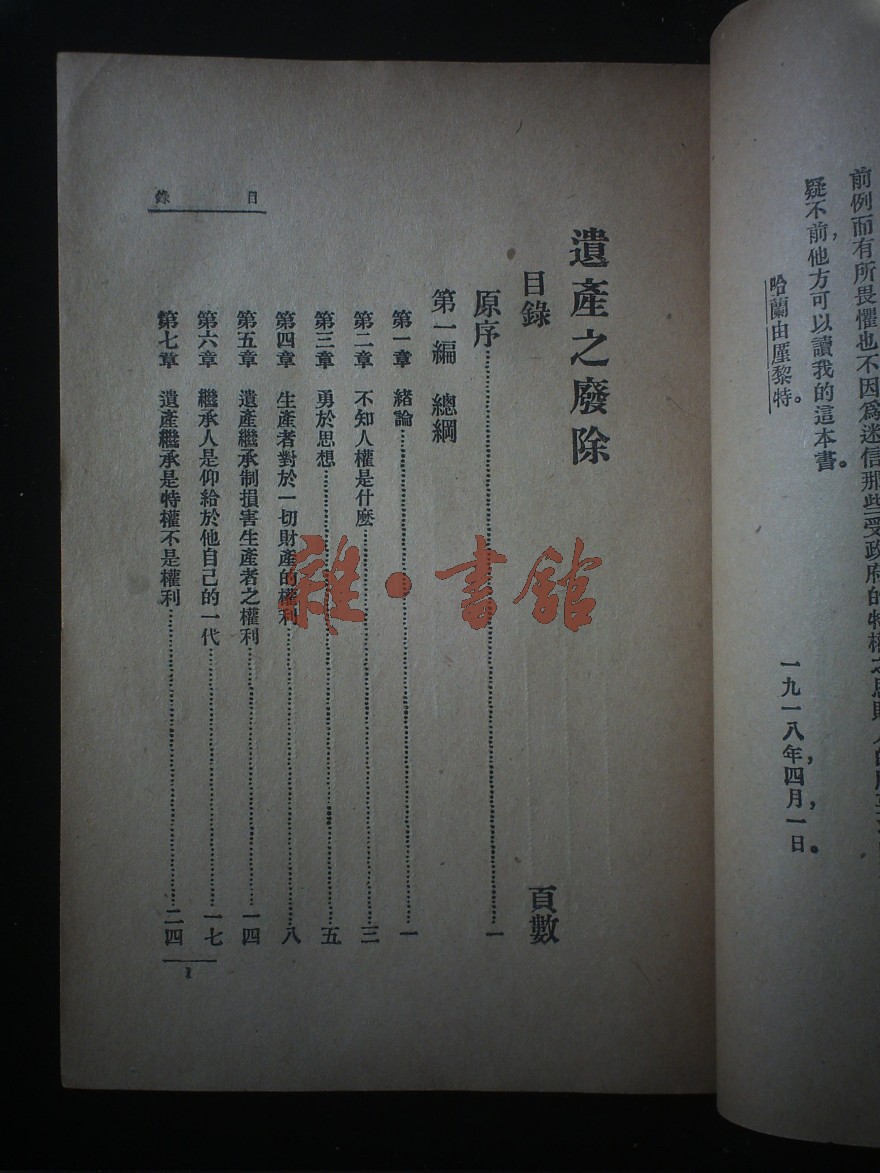 前例而有所畏懼也不因爲迷信那些受政府的特權之
疑不前，他方可以讀我的這本書。
哈蘭由厪黎特。
一九一八年，四月，一日。
目錄
遺產之廢除
目錄 頁數
原序 一
第一編 總綱
第一章 緒論 一
第二章 不知人權是什麼 三
第三章 勇於思想 五
第四章 生產者對於一切財產的權利 八
第五章 遺產繼承制損害生產者之權利 一四
第六章 繼承人是仰給於他自己的一代 一七
第七章 遺產繼承是特權不是權利 二四
1
雜·書館